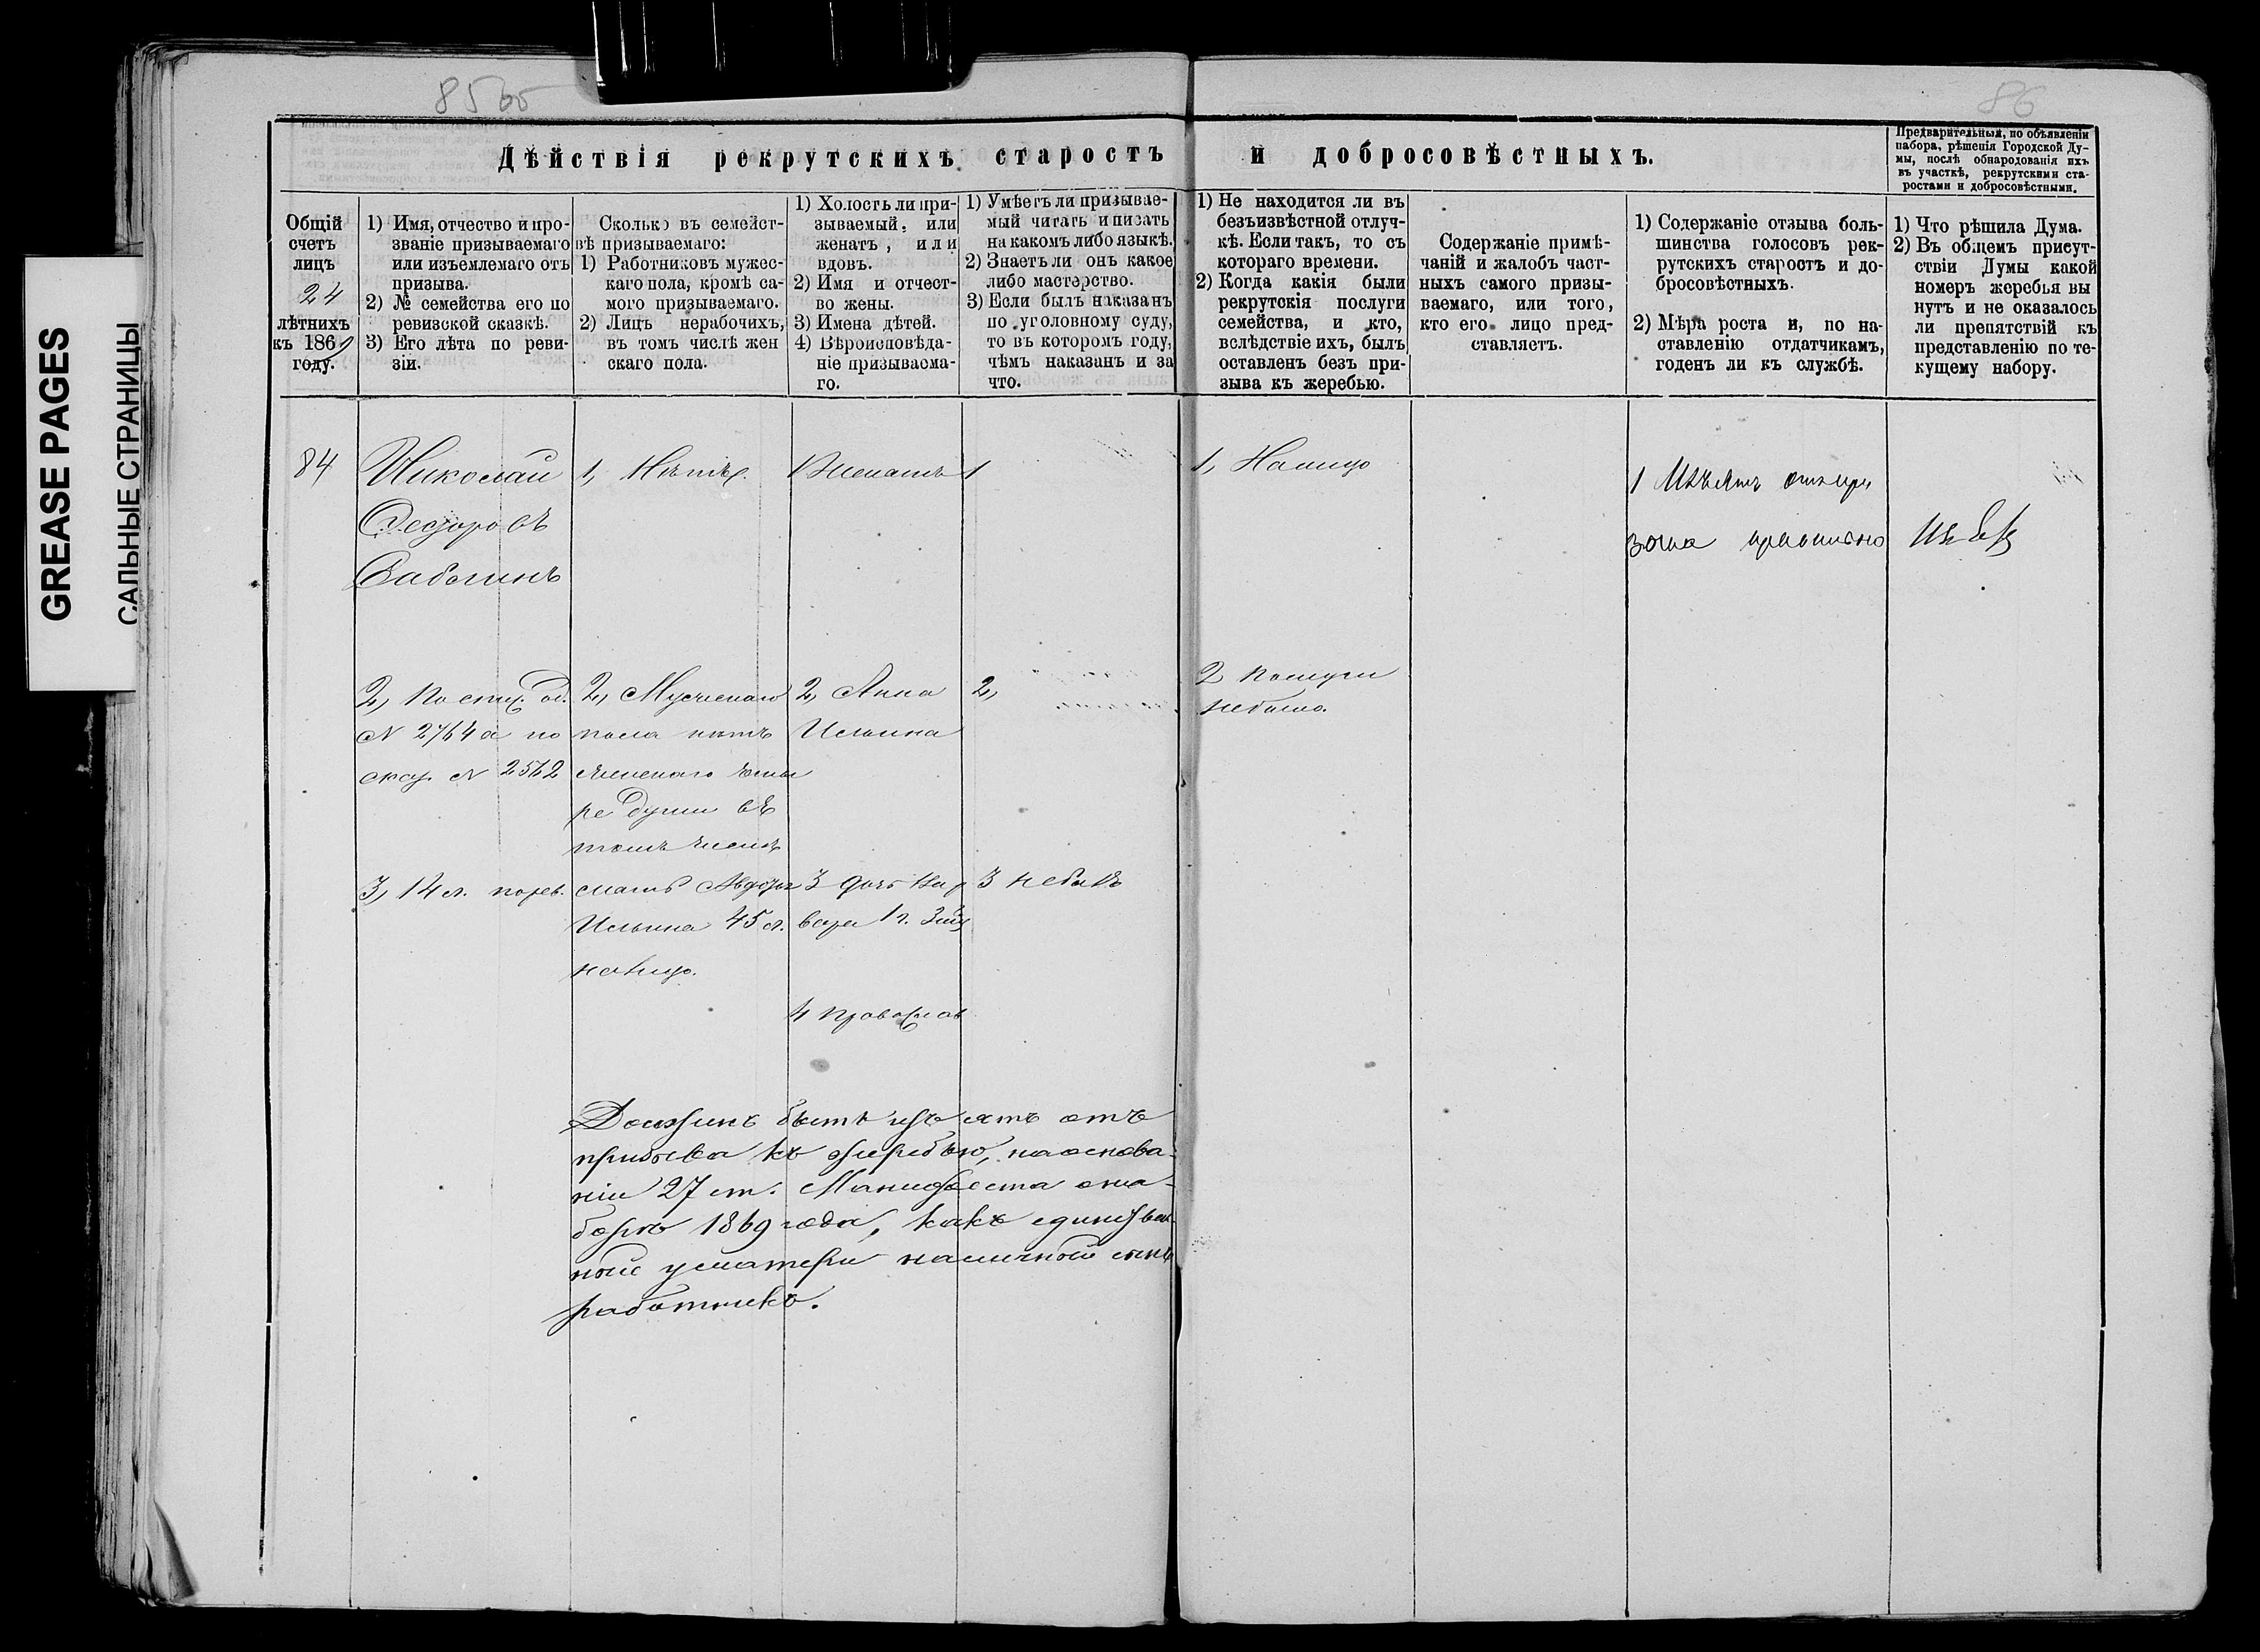 GREASE PAGES
САЛЬНЫЕ СТРАНИЦЫ
85об
86
Дѣйствія рекрутскихъ старостъ и добросовѣстныхъ.
Предварительныя, по объявленіи
набора, рѣшенія Городской Ду-
мы, послѣ обнародованія ихъ
въ участкѣ, рекрутскими ста-
ростами и добросовѣстными.
Общій
счетъ
лицъ
24
лѣтнихъ
къ 1869
году.
1) Имя, отчество и про-
званіе призываемаго
или изъемлемаго отъ
призыва.
2) № семейства его по
ревизской сказкѣ.
3) Его лѣта по реви-
зіи.
Сколько въ семейст-
вѣ призываемаго:
1) Работниковъ мужес-
каго пола, кромѣ са-
мого призываемаго.
2) Лицъ нерабочихъ,
въ томъ числѣ жен
скаго пола.
1) Холостъ ли при-
зываемый, или
женатъ, или
вдовъ.
2) Имя и отчест-
во жены.
3) Имена дѣтей.
4) Вѣроисповѣда-
ніе призываема-
го.
1) Умѣетъ ли призывае-
мый читать и писать
на какомъ либо языкѣ.
2) Знаетъ ли онъ какое
либо мастерство.
3) Если былъ наказанъ
по уголовному суду,
то въ котором году,
чѣмъ наказанъ и за
что.
1) Не находится ли въ
безъизвѣстной отлуч-
кѣ. Если такъ, то съ
котораго времени.
2) Когда какія были
рекрутскія послуги
семейства, и кто,
вслѣдствіе ихъ, былъ
оставленъ безъ при-
зыва къ жеребью.
Содержаніе примѣ-
чаній и жалобъ част-
ныхъ самого призы-
ваемаго, или того,
кто его лицо пред-
ставляетъ.
1) Содержаніе отзыва боль-
шинства голосовъ рек-
рутскихъ старостъ и до-
бросовѣстныхъ.
2) Мѣра роста и, по на-
ставленію отдатчикамъ,
годенъ ли къ службѣ.
1) Что рѣшила Дума.
2) Въ общемъ присут-
ствіи Думы какой
номеръ жеребья вы
нутъ и не оказалось
ли препятствій къ
представленію по те-
кущему набору.
84
Николай
Федоровъ
1, Нѣтъ.
1 Женатъ
1
1, Налицо
1 Изъятъ отъ при
зыва правильно
2, По
N 2764 а по
сказ. N 2562
2, Мужескаго
пола нѣтъ
женскаго четы
ре души въ
томъ числѣ
мать Авдотья
Ильина 45 л.
налицо.
2, Анна
Ильина
2,
2 Послуги
небыло.
3, 14 л. порев.
3 дочь Вар
вара 1 г.
3 небылъ
4 Православ
Долженъ быть изъятъ отъ
призыва къ жеребью, на основа-
ніи 27 ст. Манифеста о на-
борѣ 1869 года, какъ единствен-
ный у матери наличный сынъ
работникъ.